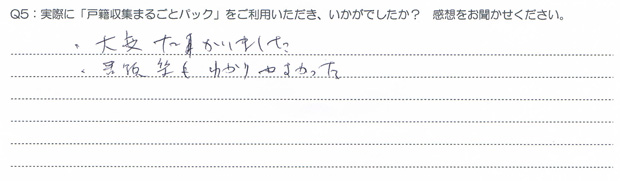 Q5：実際に「戸籍収集まるごとパック」をご利用いただき、いかがでしたか？　感想をお聞かせください。
・大変たすかりました
・見積等もわかりやすかった